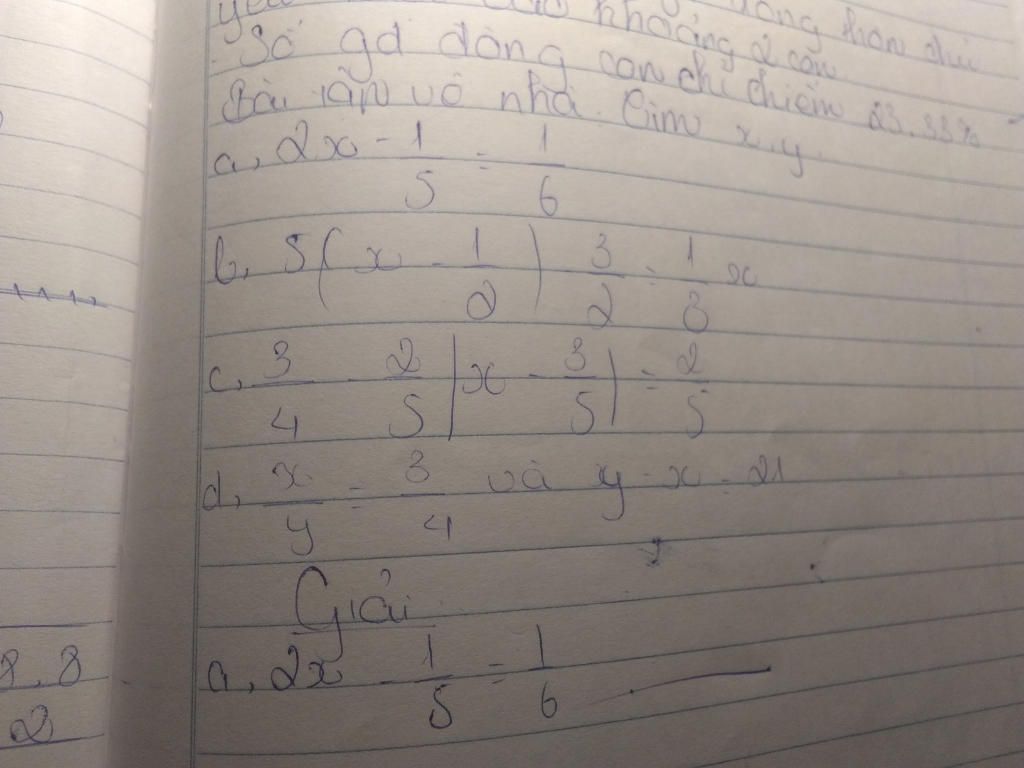 khoảng 2 con
Số gđ đông con chỉ chiếm 23,33%
Bài tập về nhà. Tìm x, y.
a, 2x - 1/5 = 1/6
b, 5(x - 1/2) - 3/2 = 1/3 x
c, 3/4 - 2/5 |x - 3/5| = 2/5
d, x/y = 3/4 và y - x = 21
Giải
a, 2x - 1/5 = 1/6
8,8
2